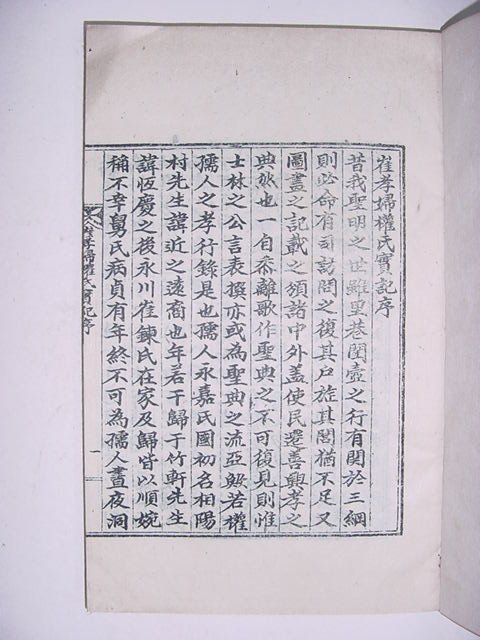 崔孝婦權氏實記序
昔我聖明之世雖里巷閨壼之行有関於三綱
則必命有司訪問之復其戶旌其閭猶不足又
圖畫之記載之頒諸中外盖使民遷善興孝之
典然也一自黍離歌作聖典之不可復見則惟
士林之公言表撰亦或為聖典之流亞歟若權
孺人之孝行錄是也孺人永嘉氏國初名相陽
村先生諱近之遠裔也年若干歸于竹軒先生
諱恆慶之後永川崔鍊氏在家及歸皆以順婉
稱不幸舅氏病貞有年終不可為孺人晝夜洞
崔孝婦權氏實記序
一